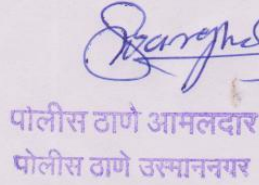 पोलीस ठाणे आमलदार
पोलीस ठाणे उस्माननगर